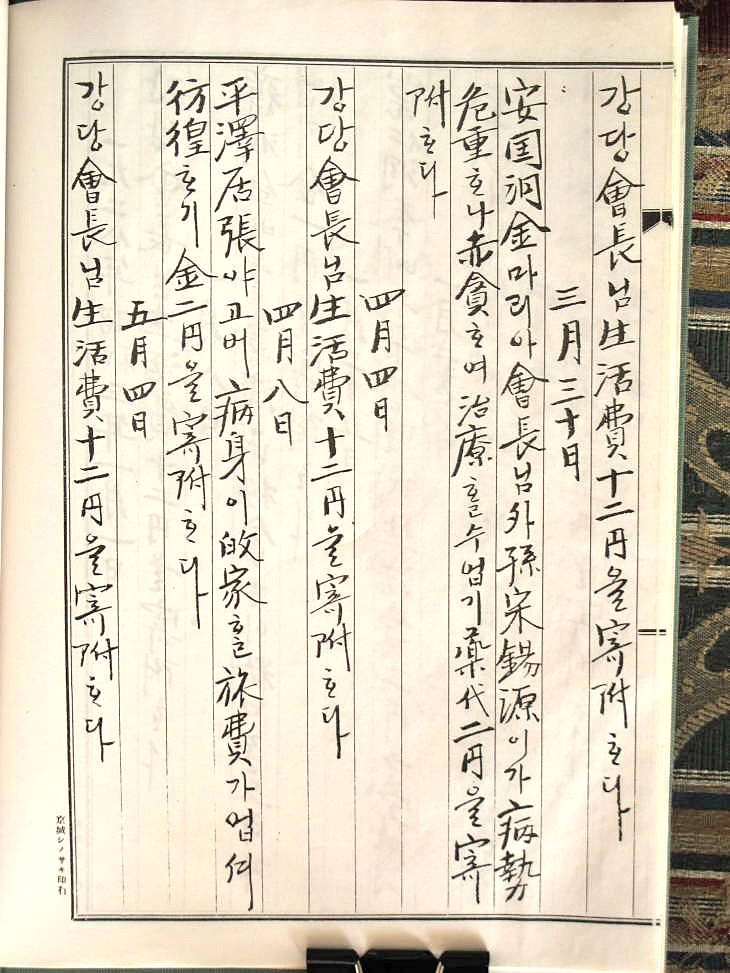 강당會長님生活費十二円을寄附하다
三月三十日
安国洞金마리아會長님外孫宋錫源이가病勢
危重하나赤貧하여治療할수업기藥代二円을寄
附하다
四月四日
강당會長님生活費十二円을寄附하다
四月八日
平澤居張야고버病身이 家할旅費가업셔
彷徨하기金二円을寄附하다
五月四日
강당會長님生活費十二円을寄附하다
京城シノサキ印行